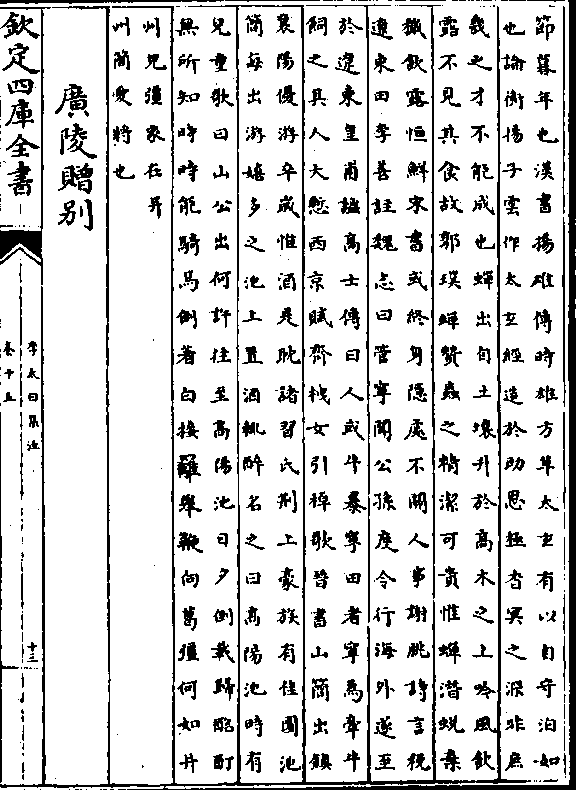 節暮年也漢書揚雄傳時雄方草太𤣥有以自守泊如
也論衡揚子雲作太𤣥經造於助思極杳冥之深非庶
幾之才不能成也蟬出自土壤升於高木之上吟風飲
露不見其食故郭璞蟬贊蟲之精潔可貴惟蟬潜蛻棄
穢飲露恒鮮宋書或終身隱處不關人事謝朓詩言稅
遼東田李善註魏志曰管寧聞公孫度令行海外遂至
於遼東皇甫謐髙士傳曰人或牛暴寧田者寧為牽牛
飼之其人大慙西京賦齊栧女引棹歌晉書山簡出鎮
襄陽優游卒歲惟酒是耽諸習氏荆土豪族有佳園池
簡每出游嬉多之池上置酒輒醉名之曰髙陽池時有
兒童歌曰山公出何許徃至髙陽池日夕倒載歸酩酊
無所知時時能騎馬倒著白接䍦舉鞭向葛彊何如并
州兒彊家在并
州簡愛將也
廣陵贈别
欽定四庫全書
李太白集注
卷十五
十三